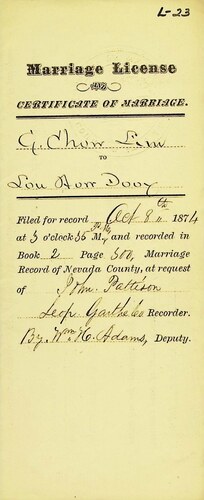 L-23
Marriage License
OR
CERTIFICATE OF MARRIAGE.
G. Chow Lim
TO
Lou How Dooy
Filed for record Oct 8th 1874
at 3 o'clock 56 M., and recorded in
Book 2 Page 500, Marriage
Record of Nevada County, at request
of John Pattison
Recorder.
By Wm. H. Adams, Deputy.